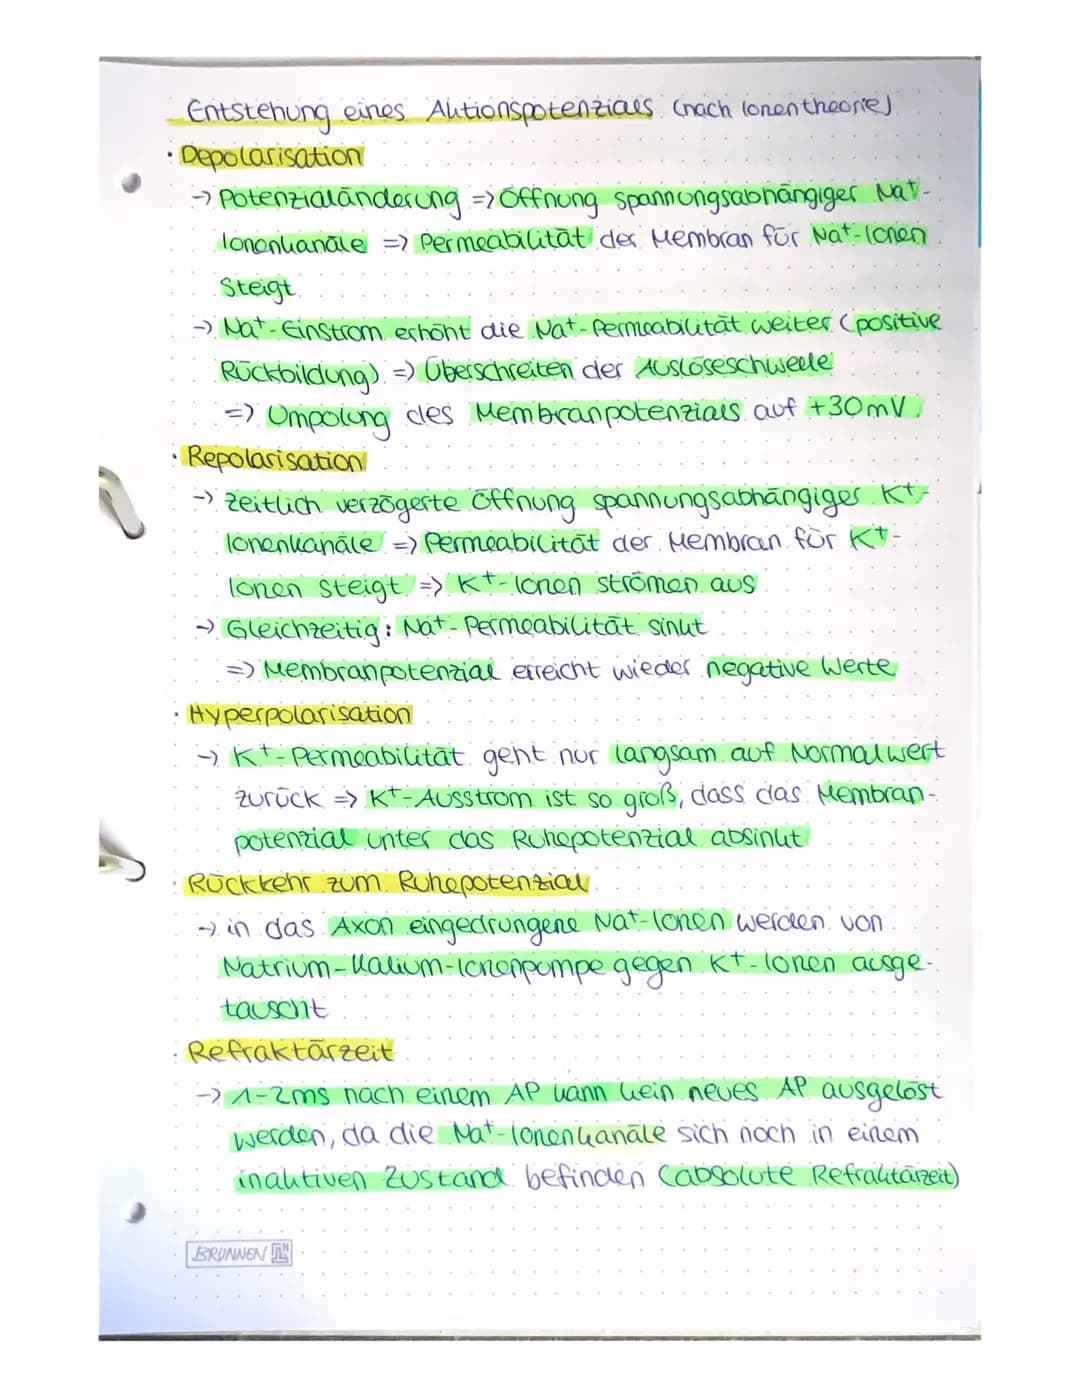 Entstehung eines Aktionspotenzials (nach Ionentheorie)
· Depolarisation
-> Potenzialänderung => Öffnung spannungsabhängiger Na+-
Ionenkanäle => Permeabilität der Membran für Na+-Ionen
steigt
-> Na+-Einstrom erhöht die Na+-Permeabilität weiter (positive
Rückbildung) => Überschreiten der Auslöseschwelle
=> Umpolung des Membranpotenzials auf +30mV
· Repolarisation
-> zeitlich verzögerte Öffnung spannungsabhängiger K+-
Ionenkanäle => Permeabilität der Membran für K+-
Ionen steigt => K+-Ionen strömen aus
-> Gleichzeitig: Na+-Permeabilität sinkt
=> Membranpotenzial erreicht wieder negative Werte
· Hyperpolarisation
-> K+-Permeabilität geht nur langsam auf Normalwert
zurück => K+-Ausstrom ist so groß, dass das Membran-
potenzial unter das Ruhepotenzial absinkt
· Rückkehr zum Ruhepotenzial
-> in das Axon eingedrungene Na+-Ionen werden von
Natrium-Kalium-Ionenpumpe gegen K+-Ionen ausge-
tauscht
· Refraktärzeit
-> 1-2ms nach einem AP kann kein neues AP ausgelöst
werden, da die Na+-Ionenkanäle sich noch in einem
inaktiven Zustand befinden (absolute Refraktärzeit)
BRUNNEN